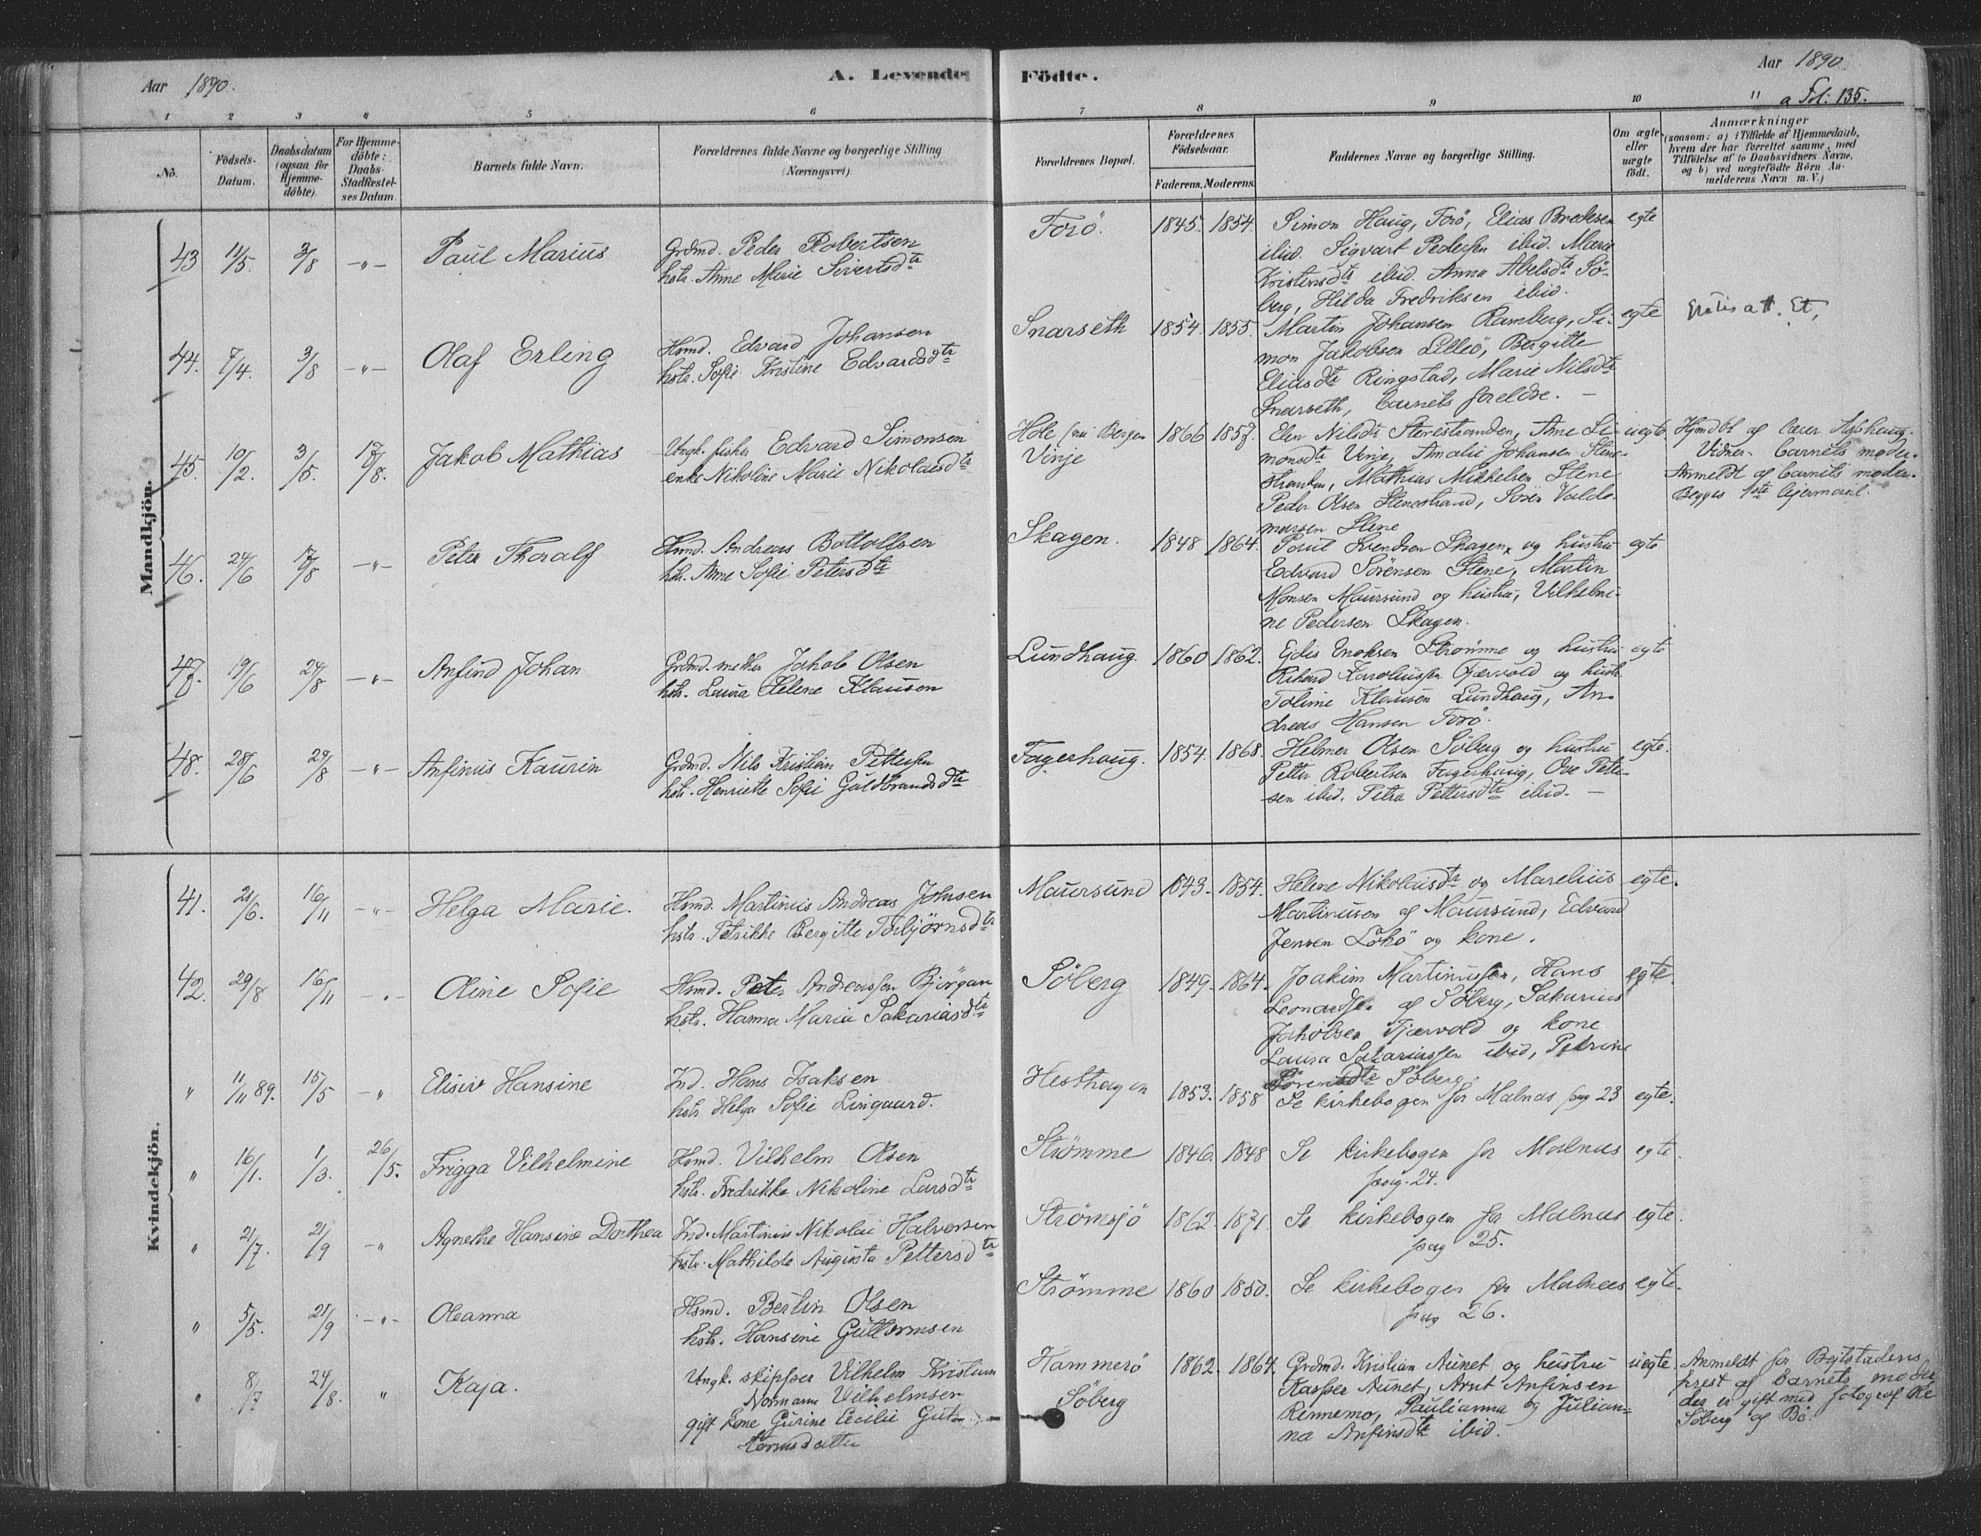 Aar 1890.
A. Levende
Födte.
Aar 1890.
a Fol: 135.
1 2 3 4 5 6 7 8 9 10 11
No.
Födsels-
Datum.
Daabsdatum
(ogsaa for
Hjemme-
döbte).
For Hjemme-
döbte:
Daabs-
Stadfæstel-
ses Datum.
Barnets fulde Navn.
Forældrenes fulde Navne og borgerlige Stilling
(Næringsvei).
Forældrenes Bopæl.
Forældrenes
Födselsaar.
Faderens. Moderens.
Faddernes Navne og borgerlige Stilling.
Om ægte
eller
uægte
födt.
Anmærkninger
(saasom: a) i Tilfælde af Hjemmedaab,
hvem der har forrettet samme, med
Tilföielse af to Daabsvidners Navne,
og b) ved uægtefödte Börn An-
melderens Navn m. V.)
Mandkjön.
43 11/5. 3/8 -"- Paul Marius
Grdmd. Peder Robertsen
hstr. Anne Marie Sivertsdtr
Forö. 1845. 1854.
Simon Haug, Forö, Elias Bredesen
ibid. Sigvart Pedersen ibid. Marie
Kristensdtr ibid. Anna Abelsdtr Sö-
berg, Hilda Fredriksen ibid.
egte
44. 7/4. 3/8 -"- Olaf Erling
Hsmd. Edvard Johansen
hstr. Sofie Kristine Edvardsdtr
Snarseth 1854. 1855.
Martin Johansen Ramberg, Si-
mon Jakobsen Lilleö, Bergitte
Eliasdtr Ringstad, Marie Nilsdtr
Snarseth, barnets forældre. -
egte
Gratis att. Et.
45. 10/2. 3/5. 17/8. Jakob Mathias
Ungk. fisker Edvard Simonsen
enke Nikoline Marie Nikolaisdtr
Hole (nu Bergen
Vinje
1866 1857.
Elen Nilsdtr Stenestranden, Ane Si-
monsdtr Vinje, Amalie Johansen Stene-
stranden, Mathias Mikkelsen Stene
Peder Olsen Stenestrand, Sören Valde-
marsen Stene
uegte
Hjmdbt af lærer Høshaug.
Vidner. barnets moder.
Anmeldt af barnets moder.
Begges 1ste lejermaal.
46. 24/6 17/8 -"- Peter Thoralf
Hsmd. Andreas Bottolfsen
hstr. Anne Sofie Petersdtr
Skagen. 1848 1864.
Poul Svendsen Skagen, og hustru
Edvard Sörensen Stene, Martin
Monsen Maursund og hustru, Vilhelmi-
ne Pedersen Skagen.
egte
47. 19/6 24/8 -"- Anfind Johan
Grdmd. Jakob Olsen
hstr. Laura Helene Klausen
Lundhaug. 1860 1862.
Edis Enoksen Strømme og hustru
Rikard Karoliussen Fjærvold og hustr.
Toline Klausen Lundhaug, An-
dreas Hansen Forö.
egte
48. 28/6 29/8 -"- Anfinus Kaurin
Grdmd. Nils Kristian Pettersen
hstr. Henriette Sofie Guldbrandsdtr
Fagerhaug. 1854. 1868.
Helmer Olsen Söberg og hustru
Petter Robertsen Fagerhaug, Ove Petter-
sen ibid. Petra Pettersdtr ibid. -
egte.
Kvindekjön.
41. 21/6. 16/11 -"- Helga Marie.
Hsmd. Martinus Andreas Johnsen
hstr. Petrikke Bergitte Torbjørnsdtr
Maursund 1843. 1854.
Helene Nikolaisdtr og Marelius
Martinusen af Maursund, Edvard
Jensen Lökö og kone.
egte.
42. 29/8 16/11 -"- Oline Sofie
Hsmd. Peter Andreassen Bjørgan
hstr. Hanna Maria Sakariasdtr
Söberg 1849. 1864.
Joakim Martinussen, Hans
Leonardsen af Söberg, Sakarius
Jakobsen Fjærvold og kone
Laura Sakariussen ibid, Petrine
Sörensdtr Söberg.
egte.
" 11/11 89. 15/5 -" Elisiv Hansine
Ind. Hans Isaksen
hstr. Helga Sofie Lingaard.
Hesthagen 1853. 1858
Se kirkebogen for Malnæs pag 23
egte.
" 16/1. 1/3. 26/5. Frigga Vilhelmine
Hsmd. Vilhelm Olsen
hstr. Fredrikke Nikoline Larsdtr
Strømme 1846. 1848
Se kirkebogen for Malnæs
pag. 24.
egte.
" 21/7. 21/9 -" Agnethe Hansine Dorthea
Ind. Martinus Nikolai Halvorsen
hstr. Mathilde Augusta Pettersdtr
Strømsjö 1862. 1871.
Se kirkebogen for Malnæs
pag 25.
egte.
" 5/5. 21/9 -"- Oleanna
Hsmd. Bertin Olsen
hstr. Hansine Guttormsen
Strømme 1860 1850.
Se kirkebogen for Malnæs
pag 26.
egte.
" 8/7 24/8. " Kaja.
Ungk. skipper Vilhelm Kristian
Normann Vilhelmsen
gift kone Gurine Cecilie Gut-
tormsdatter
Hammerö
Söberg
1862. 1864.
Grdmd. Kristian Aunet og hustru
Kasper Aunet, Arnt Anfinsen
Rennemo, Paulianna og Julian-
na Anfinsdtr ibid.
uegte.
Anmeldt for Bogstadens
prest af barnets moder
der er gift med fotograf
Söberg af Bö.